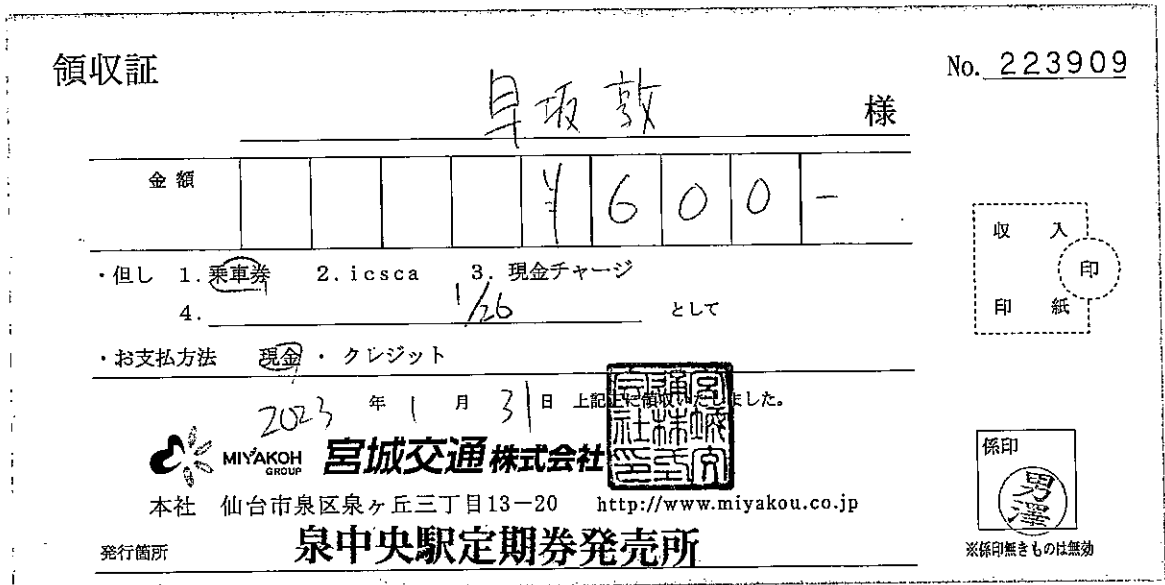 領収証
No. 223909
早坂 敦 様
金額 ¥600-
・但し 1. 乗車券 2. icsca 3. 現金チャージ
4. 1/26 として
・お支払方法 現金 ・ クレジット
2023 年 1 月 31 日 上記正に領収いたしました。
MIYAKOH GROUP 宮城交通株式会社
宮城交通株式会社之印
本社 仙台市泉区泉ヶ丘三丁目13-20 http://www.miyakou.co.jp
発行箇所 泉中央駅定期券発売所
収入
印
印紙
係印
男澤
※係印無きものは無効